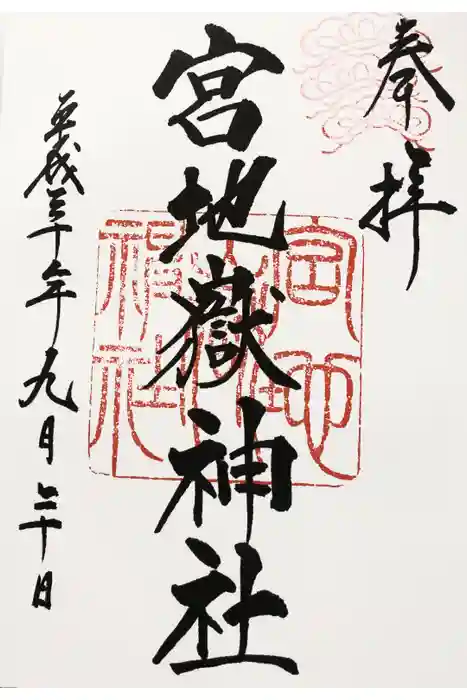 奉拝
宮地嶽神社
平成三十年九月二十日
宮地嶽神社